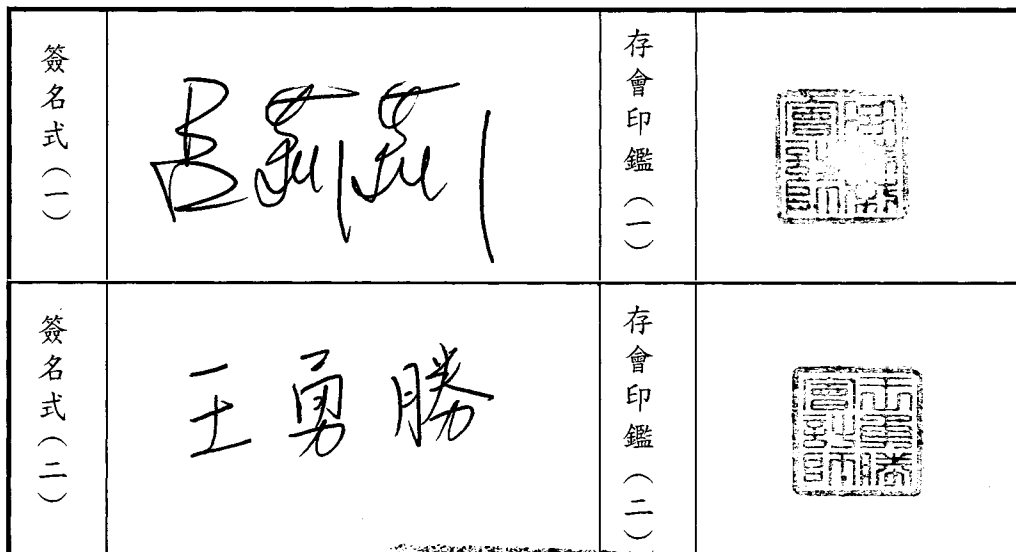 簽名式(一)
呂莉莉
存會印鑑(一)
會計師
簽名式(二)
王勇勝
存會印鑑(二)
王勇勝
會計師